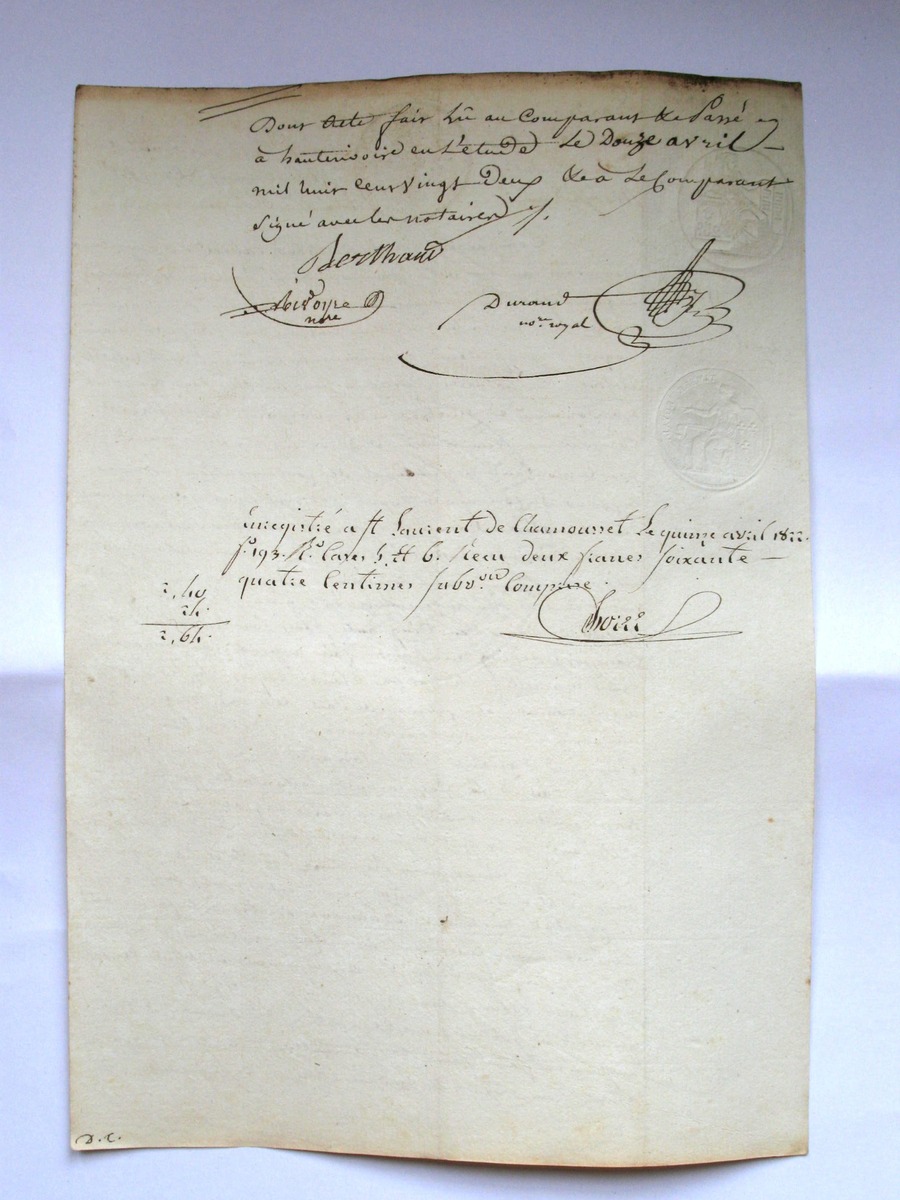 Dont acte fait lû au Comparant & Passé
à hauterivoire en L'étude Le Douze avril
mil huit cent vingt Deux & a Le Comparant
signé avec les notaires
Berthaud
nore
Durand
nore royal
Enregistré a St Laurent de Chamousset Le quinze avril 1822
fo 193. Ro Cases 5 et 6. Reçu deux francs soixante
quatre Centimes subvon Comprise.
2,40
24
2,64
D. C.